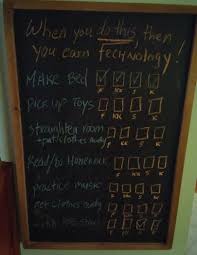 When you do this, then
you earn Technology!
MAKE BED
F KK S K
PICK UP TOYS
F KK S K
straighten room
+put clothes away
F KK S K
Read/do Homework
F KK S K
practice music
F KK S K
clothes away
F KK S K